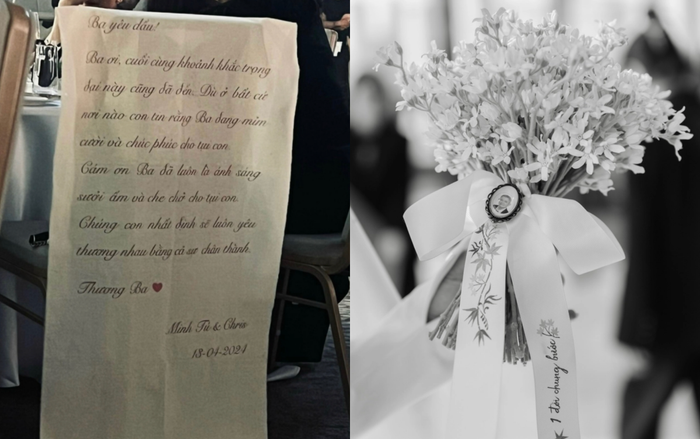 Ba yêu dấu!
Ba ơi, cuối cùng khoảnh khắc trọng
đại này cũng đã đến. Dù ở bất cứ
nơi nào con tin rằng Ba đang mỉm
cười và chúc phúc cho tụi con.
Cám ơn Ba đã luôn là ánh sáng
sưởi ấm và che chở cho tụi con.
Chúng con nhất định sẽ luôn yêu
thương nhau bằng cả sự chân thành.
Thương Ba ❤
Minh Tú & Chris
13-04-2024
1 đời chung bước